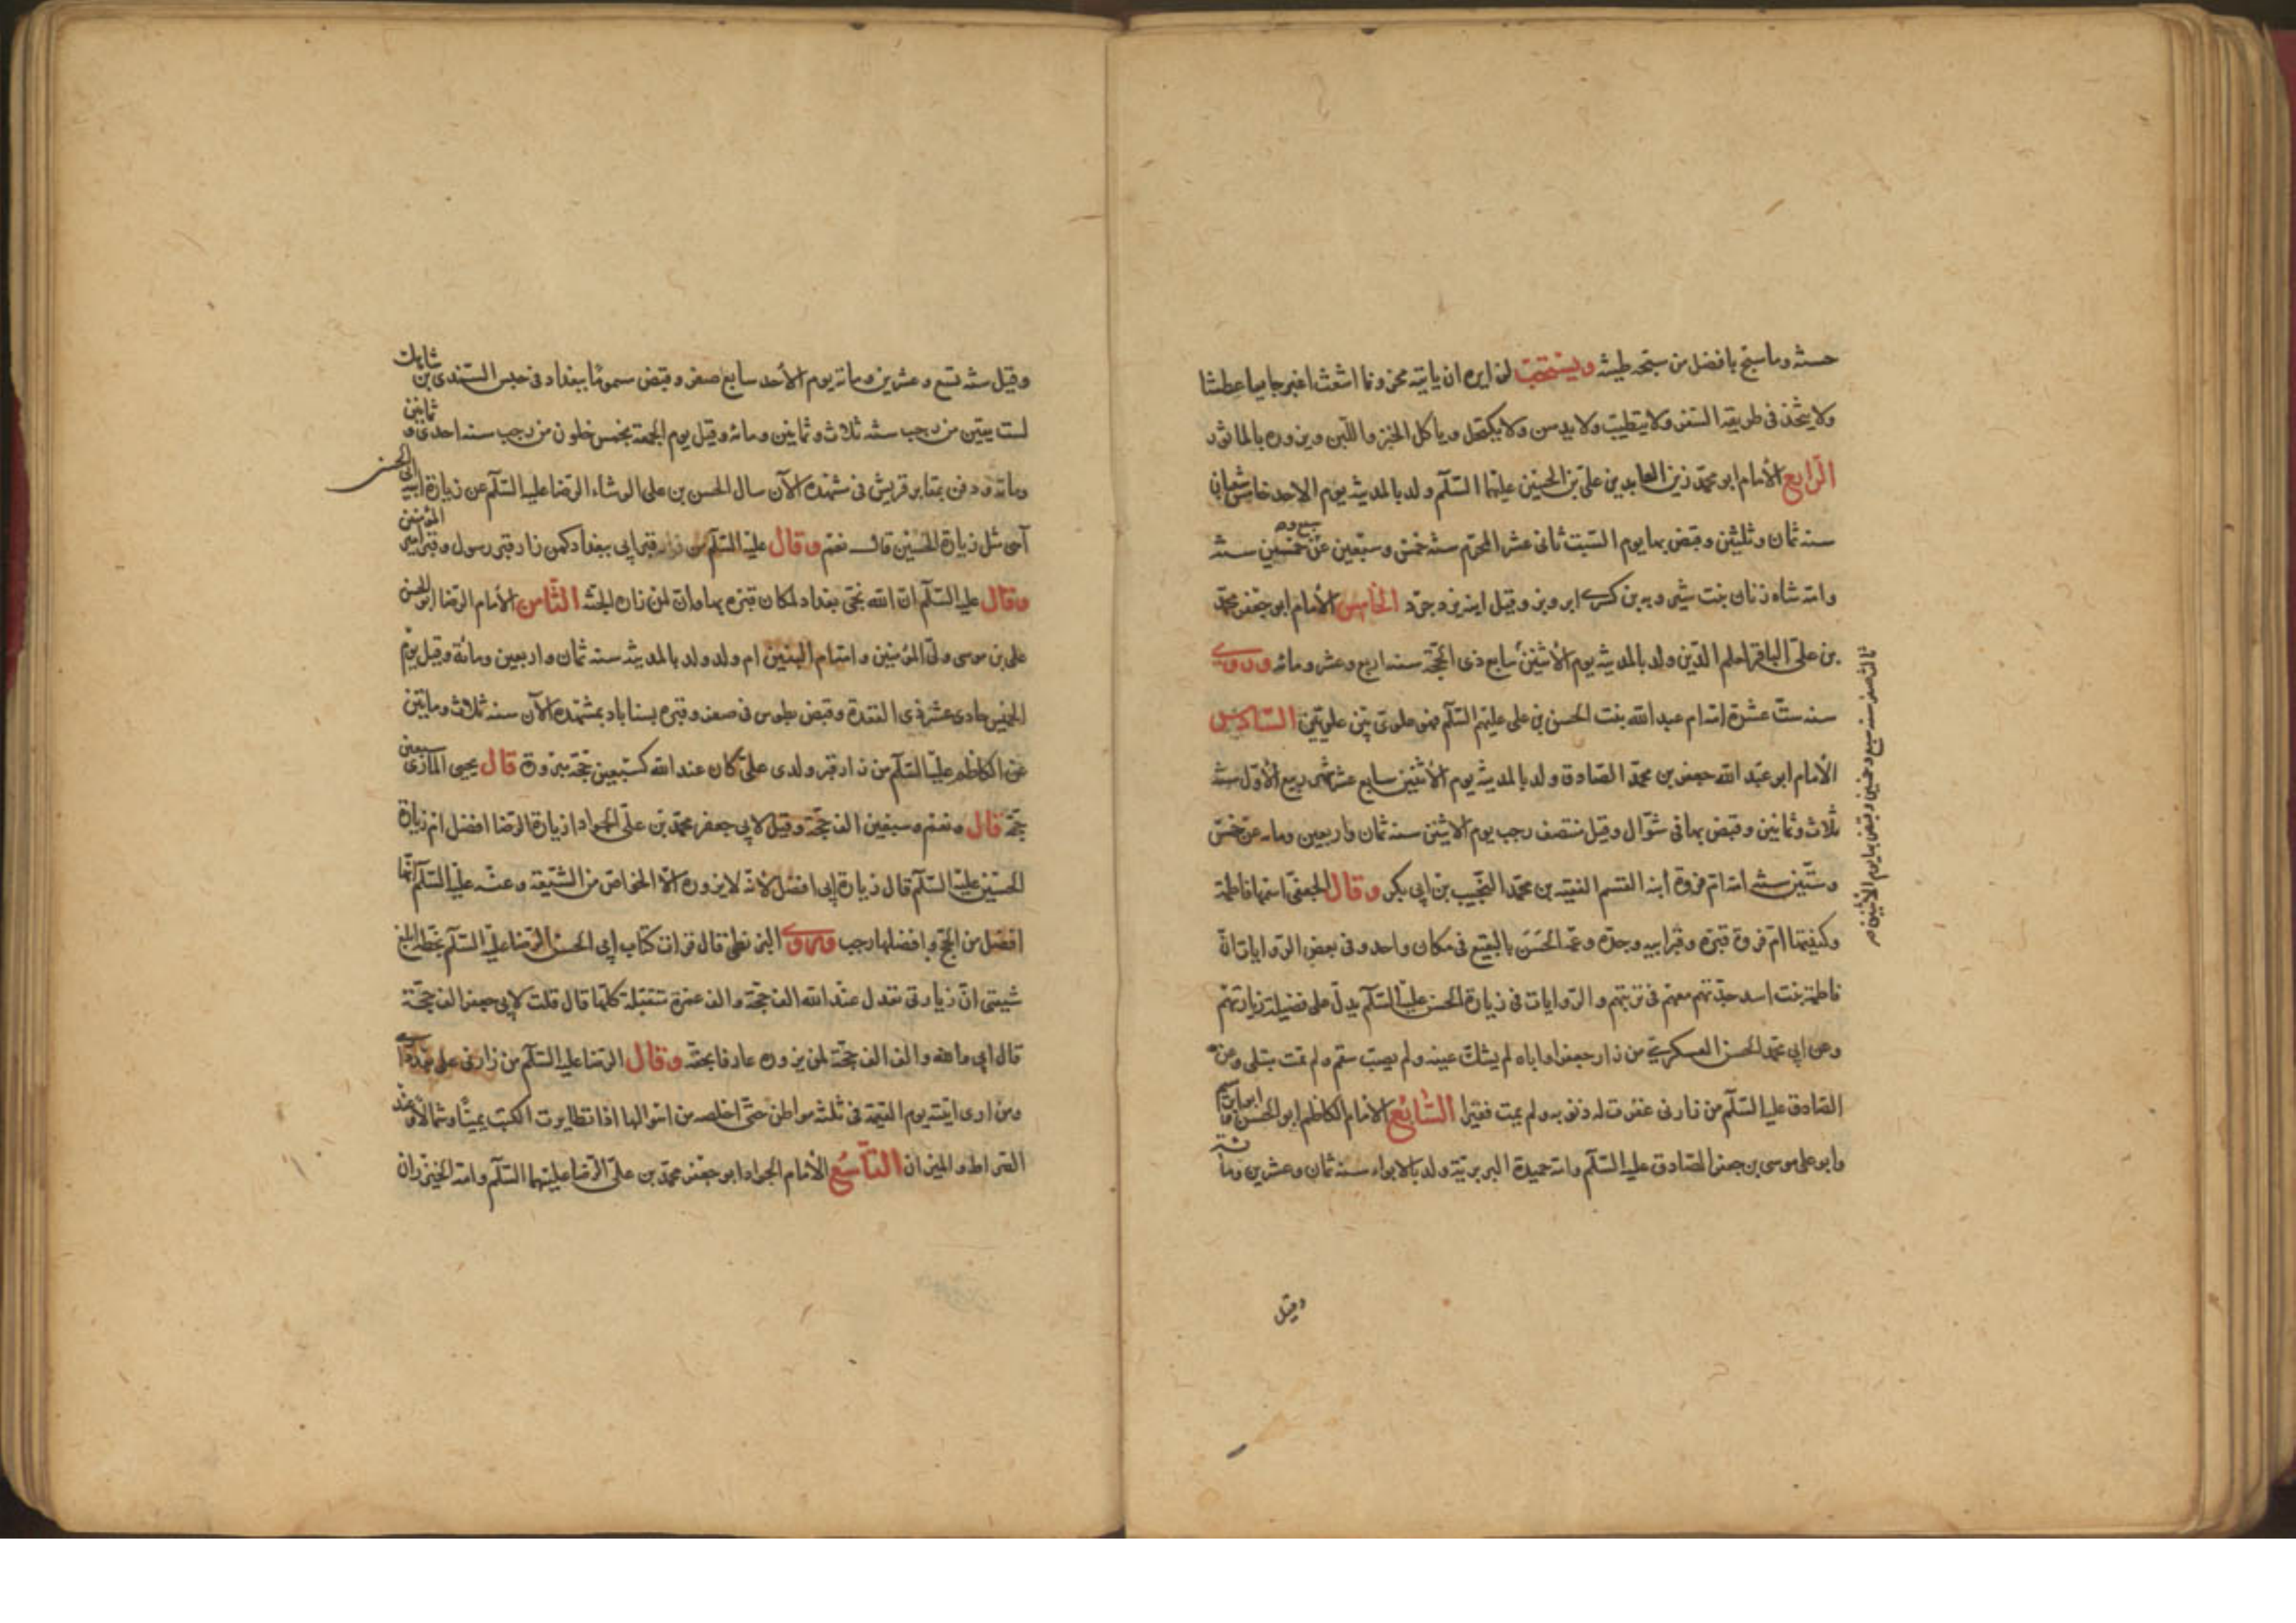 حسنة وما سبح بافضل من سبحة طينه ويستحب لزايره ان ياتيه محزونا اشعث اغبر جايعا عطشا
ولا يتخذ في طريقه السفر ولا يتطيب ولا يدهن ولا يكتحل وياكل الخبز واللبن ويزوره بالماثور
الرابع الأمام ابو محمد زين العابدين علي بن الحسين عليهما السلم ولد بالمدينه يوم الاحد خامس شعبان
سنه ثمان وثلثين وقبض بها يوم السبت ثاني عشر المحرم سنه خمس وتسعين عن سبع و خمسين سنه
وامه شاه زنان بنت شيرويه بن كسرى ابرويز وقيل ابنة يزدجرد الخامس الأمام ابو جعفر محمد
بن علي الباقر لعلم الدين ولد بالمدينه يوم الأثنين سابع ذي الحجة سنه اربع وعشر ومائه وروي
سنه ست عشرة امه ام عبد الله بنت الحسن بن علي عليهم السلم فهو علوي بين علويين السادس
الأمام ابو عبد الله جعفر بن محمد الصادق ولد بالمدينه يوم الأثنين سابع عشر شهر ربيع الأول سنه
ثلاث وثمانين وقبض بها في شوال وقيل منتصف رجب يوم الاثنين سنه ثمان واربعين ومايه عن خمس
وستين سنه امه ام فروة ابنه القسم الفقيه بن محمد النجيب بن ابي بكر وقال الجعفي اسمها فاطمة
وكنيتها ام فروة قبره وقبر ابيه وجده وعمه الحسن بالبقيع في مكان واحد وفي بعض الروايات ان
فاطمة بنت اسد جدتهم معهم في تربتهم والروايات في زيارة الحسن عليه السلم يدل على فضيلة زيارتهم
وعن ابي محمد الحسن العسكري من زار جعفرا واباه لم يشك عينه ولم يصبه سقم ولم يمت مبتلى وعن
الصادق عليه السلم من زارني غفرت له ذنوبه ولم يمت فقيرا السابع الامام الكاظم ابو الحسن وابو ابراهيم
وابو علي موسى بن جعفر الصادق عليه السلم وامه حميدة البربرية ولد بالابواء سنة ثمان وعشرين ومائة
ثالث صفر سنه سبع وخمسين وقبض بها يوم الأثنين
وقيل
وقيل سنه تسع وعشرين ومائه يوم الأحد سابع صفر وقبض مسموما ببغداد في حبس السندي بن شاهك
لست بقين من رجب سنه ثلاث وثمانين ومائه وقيل يوم الجمعة لخمس خلون من رجب سنه احدى وثمانين
ومائه ودفن بمقابر قريش في مشهده الآن سال الحسن بن علي الوشاء الرضا عليه السلم عن زيارة ابيه ابي الحسن
أهي مثل زيارة الحسين قال نعم وقال عليه السلم من زار قبر ابي ببغداد كمن زار قبر رسول وقبر امير المؤمنين
وقال عليه السلم ان الله نجى بغداد لمكان قبره بها وان لمن زاره الجنه الثامن الأمام الرضا ابو الحسن
علي بن موسى ولي المؤمنين وامه ام البنين ام ولد ولد بالمدينه سنه ثمان واربعين ومائة وقيل يوم
الخميس حادي عشر ذي القعدة وقبض بطوس في صفر وقبره بسناباد بمشهده الآن سنه ثلاث ومايتين
عن الكاظم عليه السلم من زار قبر ولدي علي كان عند الله كسبعين حجة مبرورة قال يحيى المازني سبعين
حجة قال نعم وسبعين الف حجة وقيل لابي جعفر محمد بن علي الجواد ازيارة الرضا افضل ام زيارة
الحسين عليه السلم قال زيارة ابي افضل لانه لا يزوره الا الخواص من الشيعة وعنه عليه السلم انها
افضل من الحج وافضلها رجب وروى البزنطي قال قرات كتاب ابي الحسن الرضا عليه السلم بخطه ابلغ
شيعتي ان زيارتي تعدل عند الله الف حجة والف عمرة متقبلة كلها قال قلت لابي جعفر الف حجة
قال اي والله والف الف حجة لمن يزوره عارفا بحقه وقال الرضا عليه السلم من زارني على بعد داري
ومزاري اتيته يوم القيمة في ثلثة مواطن حتى اخلصه من اهوالها اذا تطايرت الكتب يمينا وشمالا وعند
الصراط والميزان التاسع الأمام الجواد ابو جعفر محمد بن علي الرضا عليهما السلم وامه الخيزران